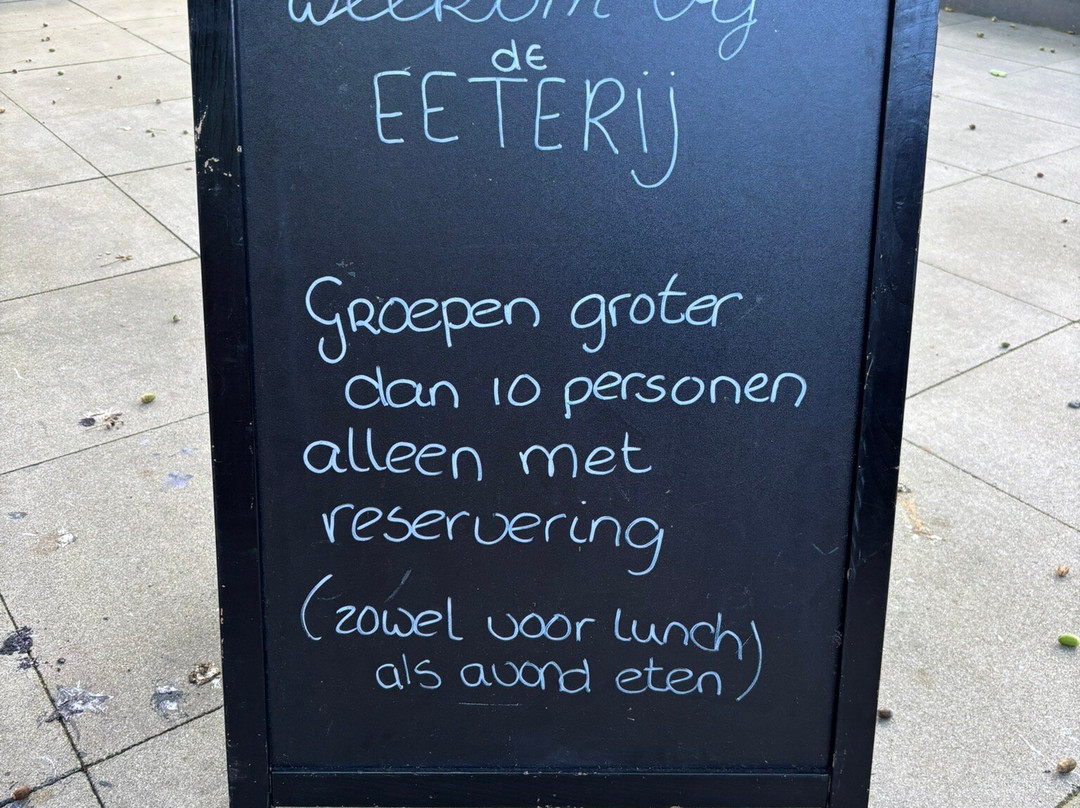 welkom bij
de
EETERIJ
Groepen groter
dan 10 personen
alleen met
reservering
(zowel voor lunch)
als avond eten)